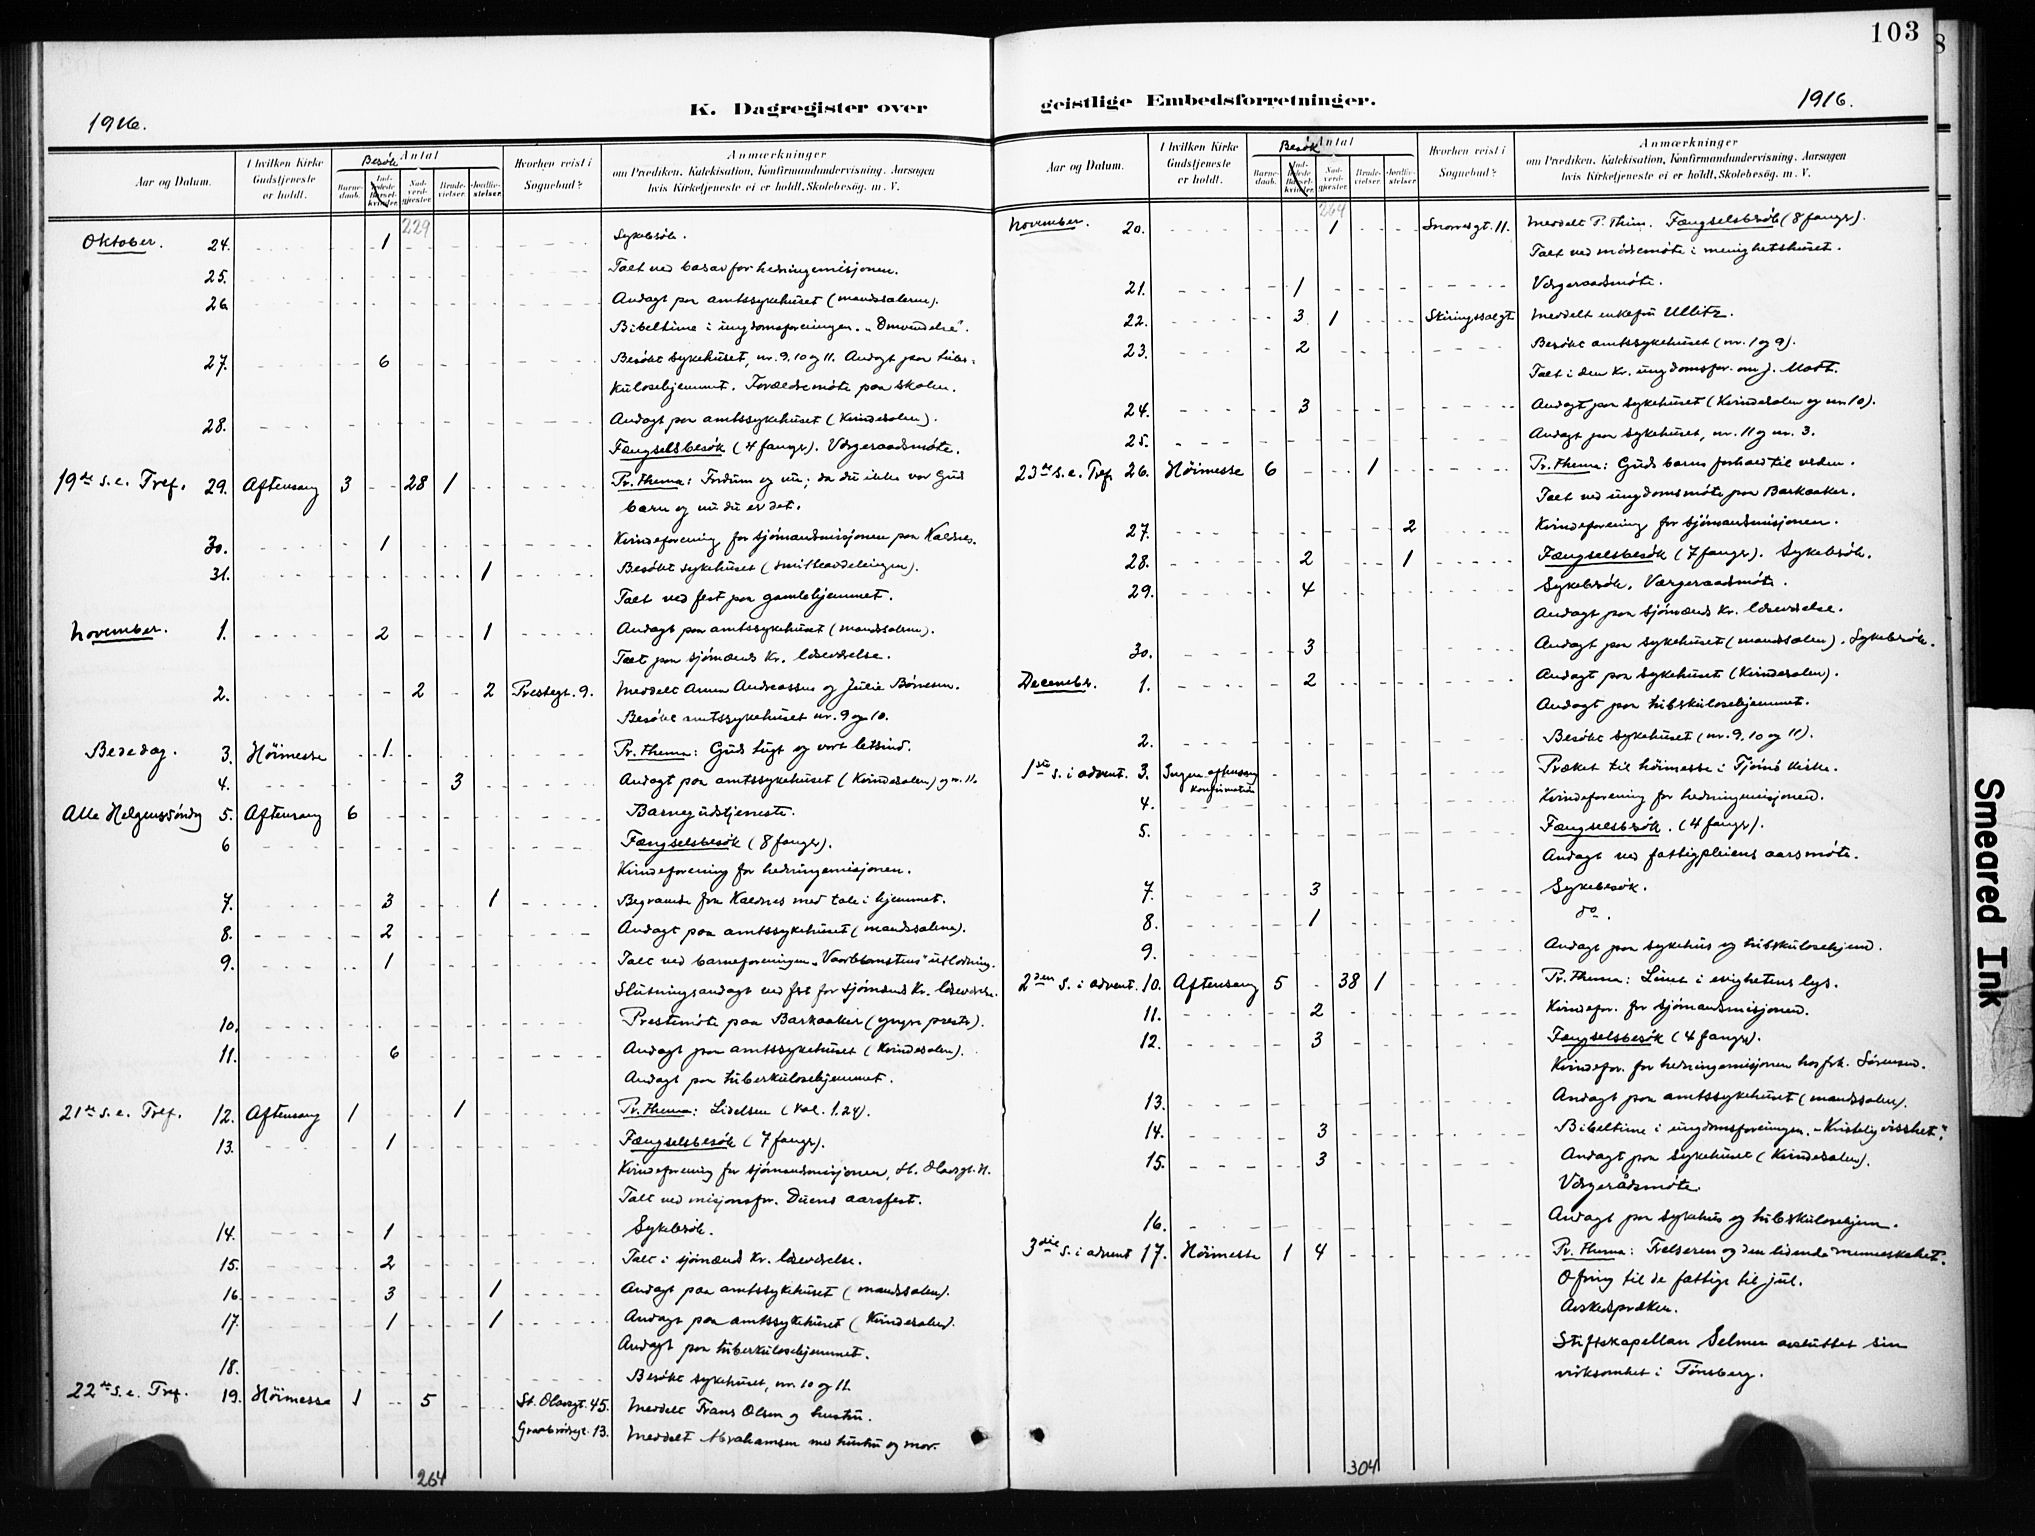 103
8
1916.
K. Dagregister over
geistlige Embedsforretninger.
1916.
Aar og Datum.
I hvilken Kirke Gudstjeneste er holdt.
Besøk
Antal
Barnedaab.
Indledede Barselkvinder.
Nadverdgjester.
Brudevielser.
Jordfæstelser.
Hvorhen reist i Sognebud?
Anmærkninger
om Prædiken, Katekisation, Konfirmandundervisning, Aarsagen
hvis Kirketjeneste ei er holdt, Skolebesøg, m. V.
229
Oktober. 24. 1 Sykebesøk.
25. Talt ved basar for hedningemisjonen.
26 Andagt paa amtssykehuset (mandssalerne).
Bibeltime i ungdomsforeningen. "Omvendelse".
27. 6 Besøkt sykehuset, nr. 9. 10 og 11. Andagt paa tuber-
kulosehjemmet. Forældremøte paa skolen.
28. Andagt paa amtssykehuset (Kvindesalen).
Fængselsbesøk (4 fanger). Værgeraadsmøte.
19de s. e. Tref. 29. Aftensang 3 28 1 Pr. thema: Fordum og nu; da du ikke var Guds
barn og nu du er det.
30. 1 Kvindeforening for sjømandsmisjonen paa Kaldnes.
31. 1 Besøkt sykehuset (smitteavdelingen).
Talt ved fest paa gamlehjemmet.
November. 1. 2 1 Andagt paa amtssykehuset (mandssalene).
Talt paa sjømænds kr. læseværelse.
2. 2 2 Prestegt. 9. Meddelt Anna Andreassen og Julie Børresen.
Besøkt amtssykehuset nr. 9 og 10.
Bededag. 3. Höimesse 1 Pr. thema: Guds tugt og vort letsind.
4. 3 Andagt paa amtssykehuset (Kvindesalen) og nr. 11.
Alle Helgenssöndag 5. Aftensang 6 Barnegudstjeneste.
6 Fængselsbesøk (8 fanger).
Kvindeforening for hedningemisjonen.
7. 3 1 Begravelse fra Kaldnes med tale i hjemmet.
8. 2 Andagt paa amtssykehuset (mandssalene).
9. 1 Talt ved barneforeningen "Vaarblomstens" utlodning.
Slutningsandagt ved fest for sjømænds kr. læseværelse.
10. Prestemøte paa Barkaaker (yngre prester).
11. 6 Andagt paa amtssykehuset (Kvindesalen).
Andagt paa tuberkulosehjemmet.
21de s. e. Tref. 12. Aftensang 1 1 Pr. thema: Lidelsen (Kol. 1.24).
13. 1 Fængselsbesøk (7 fanger).
Kvindeforening for sjømandsmisjonen, St. Olavsgt. 11.
Talt ved misjonsfor. Duens aarsfest.
14. 1 Sykebesøk.
15. 2 Talt i sjømænds kr. læseværelse.
16. 3 1 Andagt paa amtssykehuset (mandssalen).
17. 1 1 Andagt paa amtssykehuset (Kvindesalen).
Andagt paa tuberkulosehjemmet.
18. Besøkt sykehuset, nr. 10 og 11.
22de s. e. Tref. 19. Höimesse 1 5 St. Olavsgt. 45. Meddelt Frans Olsen og hustru.
Graabrødregt. 13. Meddelt Abrahamsen med hustru og mor.
264
Aar og Datum.
I hvilken Kirke Gudstjeneste er holdt.
Besøk
Antal
Barnedaab.
Indledede Barselkvinder.
Nadverdgjester.
Brudevielser.
Jordfæstelser.
Hvorhen reist i Sognebud?
Anmærkninger
om Prædiken, Katekisation, Konfirmandundervisning, Aarsagen
hvis Kirketjeneste ei er holdt, Skolebesøg, m. V.
264
November. 20. 1 Snorresgt. 11. Meddelt P. Thim. Fængselsbesøk (8 fanger).
Talt ved mødremøte i menighetshuset.
21. 1 Værgeraadsmøte.
22. 3 1 Skiringssalgt Meddelt enkefru Ullitz.
23. 2 Besøkt amtssykehuset (nr. 1 og 9).
Talt i den kr. ungdomsfor. om J. Mott.
24. 3 Andagt paa sykehuset (Kvindesalen og nr. 10).
25. Andagt paa sykehuset, nr. 11 og nr. 3.
23de s. e. Tref. 26. Höimesse 6 1 Pr. thema: Guds barns forhold til verden.
Talt ved ungdomsmøte paa Barkaaker.
27. 2 Kvindeforening for sjømandsmisjonen.
28. 2 1 Fængselsbesøk (7 fanger). Sykebesøk.
29. 4 Sykebesøk. Værgeraadsmøte.
Andagt paa sjømænds kr. læseværelse.
30. 3 Andagt paa sykehuset (mandssalen). Sykebesøk.
December. 1. 2 Andagt paa sykehuset (Kvindesalen).
Andagt paa tuberkulosehjemmet.
2. Besøkt sykehuset (nr. 9, 10 og 11).
1ste s. i advent. 3. Ingen aftensang Præket til höimesse i Tjømö kirke.
konfirmation
4. Kvindeforening for hedningemisjonen.
5. Fængselsbesøk. (4 fanger).
Andagt ved fattigpleiens aarsmöte.
7. 3 Sykebesøk.
8. 1 do.
9. Andagt paa sykehus og tuberkulosehjem.
2den s. i advent. 10. Aftensang 5 38 1 Pr. thema: Livet i evighetens lys.
11. 2 Kvindefor. for sjømandsmisjonen.
12. 3 Fængselsbesøk (4 fanger).
Kvindefor. for hedningemisjonen hos frk. Sørensen.
13. Andagt paa amtssykehuset (mandssalen).
14. 3 Bibeltime i ungdomsforeningen. "Kristelig visshet."
15. 3 Andagt paa sykehuset (Kvindesalen).
Værgerådsmöte.
16. Andagt paa sykehus og tuberkulosehjem.
3die s. i advent 17. Höimesse 1 4 Pr. thema: Frelseren og den lidende menneskehet.
Ofring til de fattige til jul.
Avskedspræken.
Stiftskapellan Selmer avsluttet sin
virksomhet i Tönsberg.
304
Smeared Ink